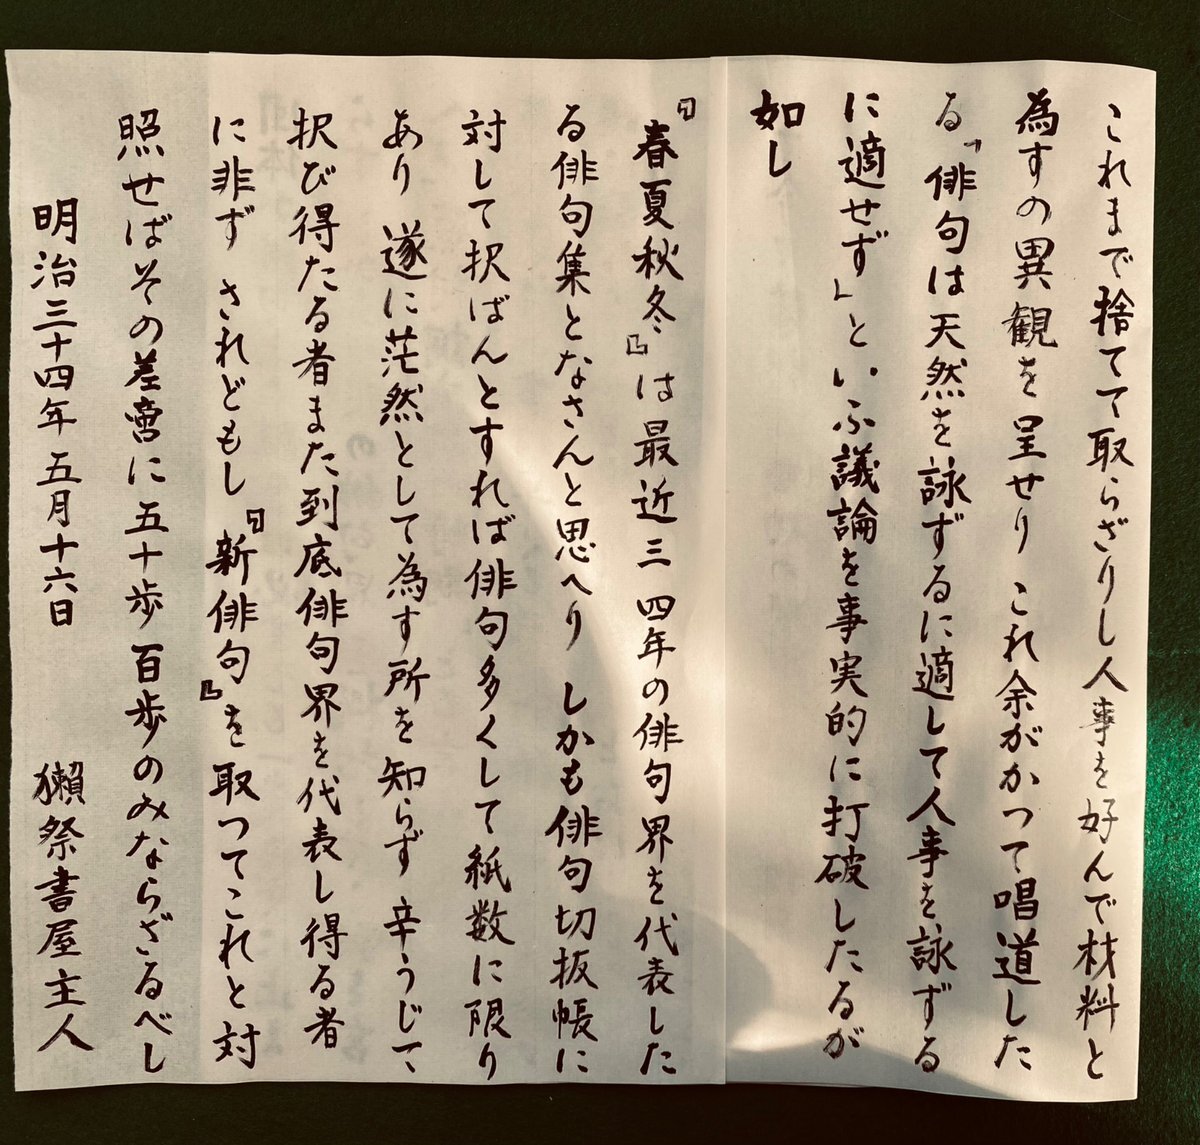 これまで捨てて取らざりし人事を好んで材料と
為すの異観を呈せり これ余がかつて唱道した
る「俳句は天然を詠ずるに適して人事を詠ずる
に適せず」といふ議論を事実的に打破したるが
如し
『春夏秋冬』は最近三四年の俳句界を代表した
る俳句集となさんと思へり しかも俳句切抜帳に
対して択ばんとすれば俳句多くして紙数に限り
あり 遂に茫然として為す所を知らず 辛うじて
択び得たる者また到底俳句界を代表し得る者
に非ず されどもし『新俳句』を取つてこれと対
照せばその差啻に五十歩百歩のみならざるべし
明治三十四年五月十六日 獺祭書屋主人